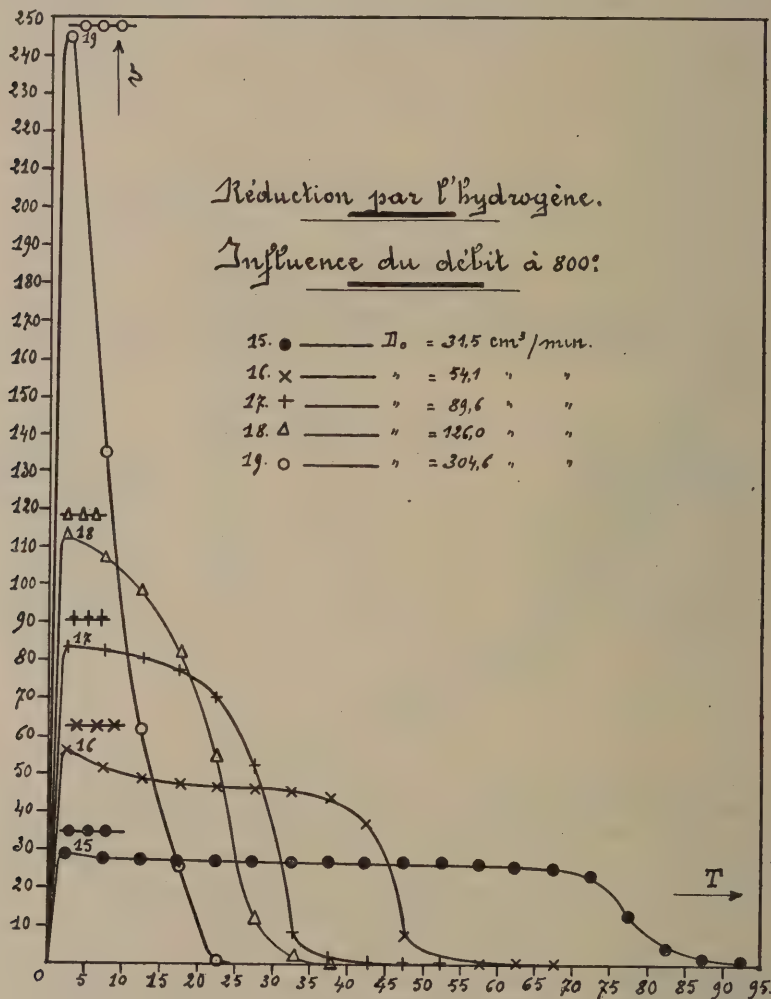 250
240
230
220
210
200
190
180
170
160
150
140
130
120
110
100
90
80
70
60
50
40
30
20
10
0
19
v
Réduction par l'hydrogène.
Influence du débit à 800°.
15. ● —— D₀ = 31,5 cm³/min.
16. × —— " = 54,1 " "
17. + —— " = 89,6 " "
18. △ —— " = 126,0 " "
19. ○ —— " = 304,6 " "
18
17
16
15
T
5 10 15 20 25 30 35 40 45 50 55 60 65 70 75 80 85 90 95.